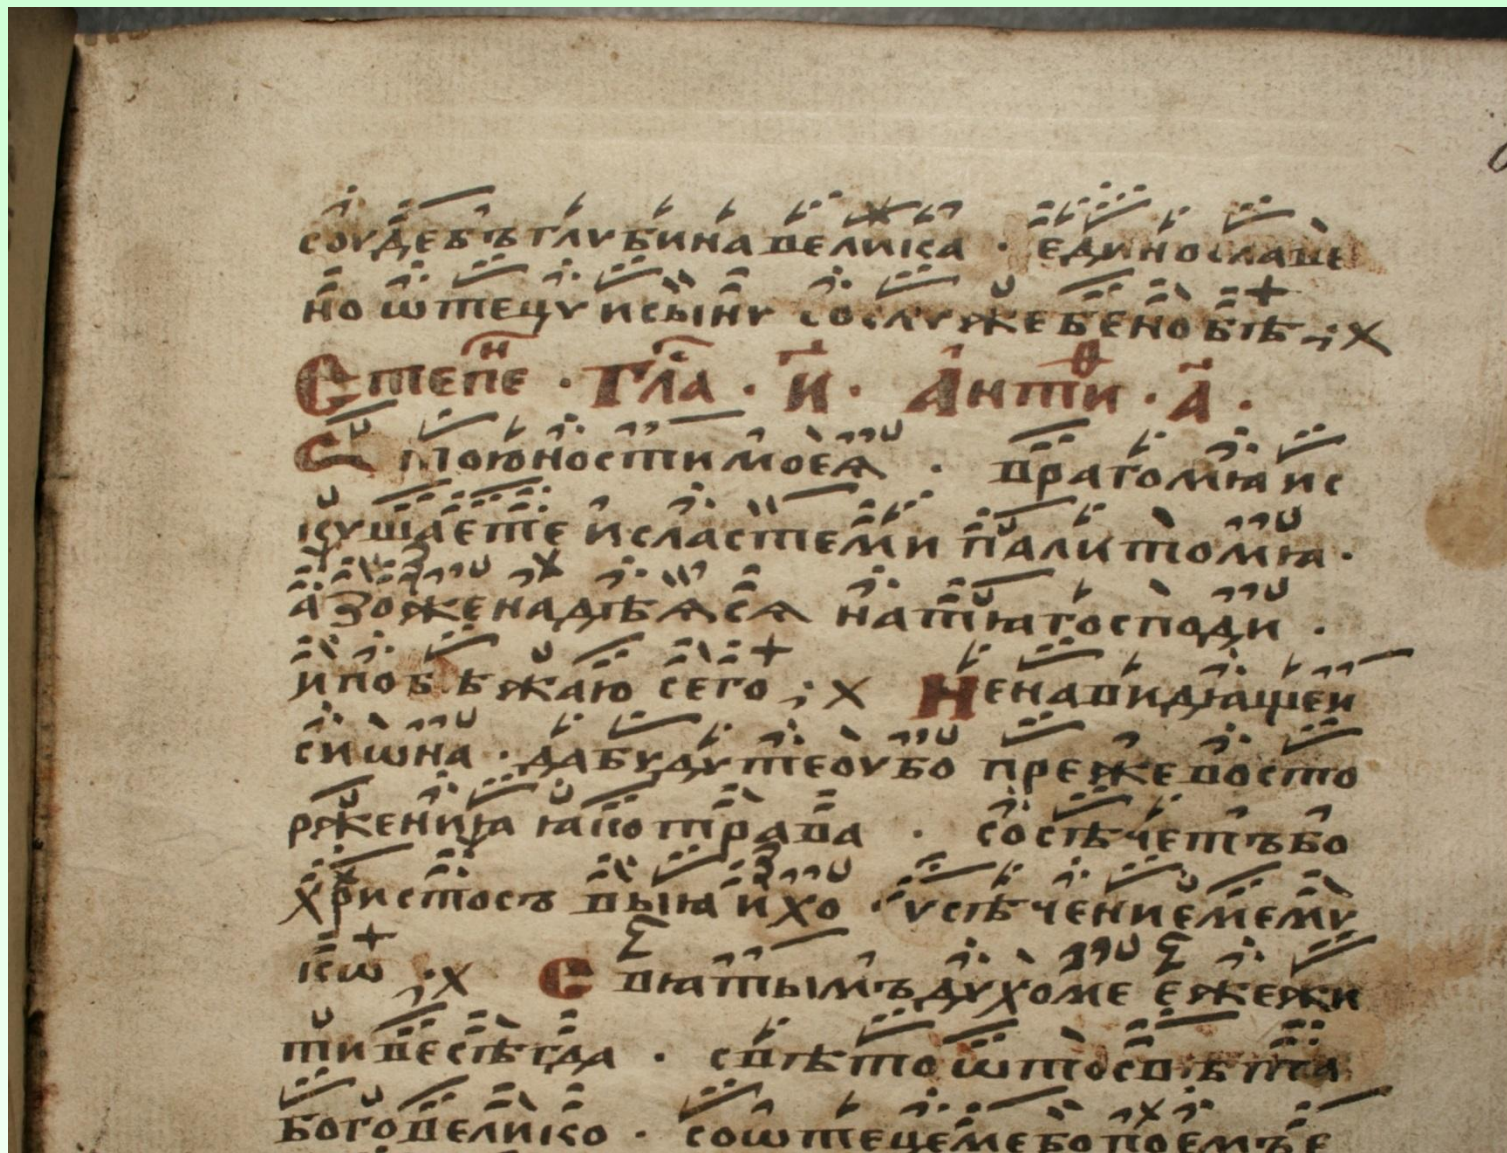 соудебъ глубина велика · единославе
но ѿтецу и сыну сослужебено бѣ ; х
Степен · Гла · и · Антиѳ · а ·
От юности моея · враго мя ис
кушаете и сластеми палито мя ·
азо же надѣяся на тя господи ·
и побѣжаю сего ; х Ненавидящеи
сиѡна · да будуте оубо преже восто
ржения яко трава · со сѣчетъ бо
христосъ выя ихо · усѣчениеме му
ко · х Святымъ духоме еже жи
ти весѣгда · свѣто ѿто свѣта
бого велико · со ѿтецеме бо поемъ е